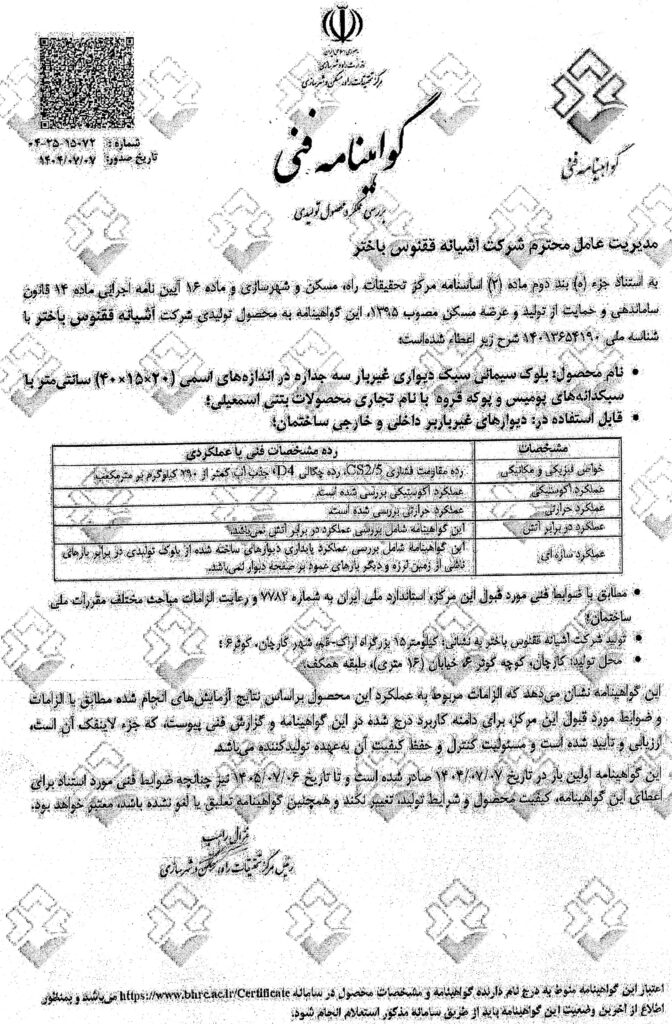 جمهوری اسلامی ایران
وزارت راه و شهرسازی
مرکز تحقیقات راه، مسکن و شهرسازی
شماره: ۱۵۰۷۲-۲۵-۰۴
تاریخ صدور: ۱۴۰۴/۰۷/۰۷
گواهینامه فنی
گواهینامه فنی
بررسی عملکرد محصول تولیدی
مدیریت عامل محترم شرکت آشیانه ققنوس باختر
به استناد جزء (ه) بند دوم ماده (۲) اساسنامه مرکز تحقیقات راه، مسکن و شهرسازی و ماده ۱۶ آیین نامه اجرایی ماده ۱۴ قانون
ساماندهی و حمایت از تولید و عرضه مسکن مصوب ۱۳۹۵، این گواهینامه به محصول تولیدی شرکت آشیانه ققنوس باختر با
شناسه ملی ۱۴۰۱۳۶۵۴۱۹۰ شرح زیر اعطاء شده‌است:
• نام محصول: بلوک سیمانی سبک دیواری غیربار سه جداره در اندازه‌های اسمی (۲۰×۱۵×۴۰) سانتی‌متر با
سبکدانه‌های پومیس و پوکه قروه با نام تجاری محصولات بتنی اسمعیلی؛
• قابل استفاده در: دیوارهای غیرباربر داخلی و خارجی ساختمان؛
مشخصات
رده مشخصات فنی یا عملکردی
خواص فیزیکی و مکانیکی
رده مقاومت فشاری CS2/5، رده چگالی D4، جذب آب کمتر از ۲۹۰ کیلوگرم بر مترمکعب.
عملکرد آکوستیکی
عملکرد آکوستیکی بررسی شده است.
عملکرد حرارتی
عملکرد حرارتی بررسی شده است.
عملکرد در برابر آتش
این گواهینامه شامل بررسی عملکرد در برابر آتش نمی‌باشد.
عملکرد سازه ای
این گواهینامه شامل بررسی عملکرد پایداری دیوارهای ساخته شده از بلوک تولیدی در برابر بارهای
ناشی از زمین لرزه و دیگر بارهای عمود بر صفحه دیوار نمی‌باشد.
• مطابق با ضوابط فنی مورد قبول این مرکز، استاندارد ملی ایران به شماره ۷۷۸۲ و رعایت الزامات مباحث مختلف مقررات ملی
ساختمان؛
• تولید شرکت آشیانه ققنوس باختر به نشانی: کیلومتر۱۵ بزرگراه اراک-قم، شهر کارچان، کوثر۶؛
• محل تولید: کارچان، کوچه کوثر ۶، خیابان (۱۶ متری)، طبقه همکف.
این گواهینامه نشان می‌دهد که الزامات مربوط به عملکرد این محصول براساس نتایج آزمایش‌های انجام شده مطابق با الزامات
و ضوابط مورد قبول این مرکز، برای دامنه کاربرد درج شده در این گواهینامه و گزارش فنی پیوست، که جزء لاینفک آن است،
ارزیابی و تایید شده است و مسئولیت کنترل و حفظ کیفیت آن به‌عهده تولیدکننده می‌باشد.
این گواهینامه اولین بار در تاریخ ۱۴۰۴/۰۷/۰۷ صادر شده است و تا تاریخ ۱۴۰۵/۰۷/۰۶ نیز چنانچه ضوابط فنی مورد استناد برای
اعطای این گواهینامه، کیفیت محصول و شرایط تولید، تغییر نکند و همچنین گواهینامه تعلیق یا لغو نشده باشد، معتبر خواهد بود.
غزال راهب
رئیس مرکز تحقیقات راه، مسکن و شهرسازی
اعتبار این گواهینامه منوط به درج نام دارنده گواهینامه و مشخصات محصول در سامانه https://www.bhrc.ac.ir/Certificate می‌باشد و بمنظور
اطلاع از آخرین وضعیت این گواهینامه باید از طریق سامانه مذکور استعلام انجام شود.